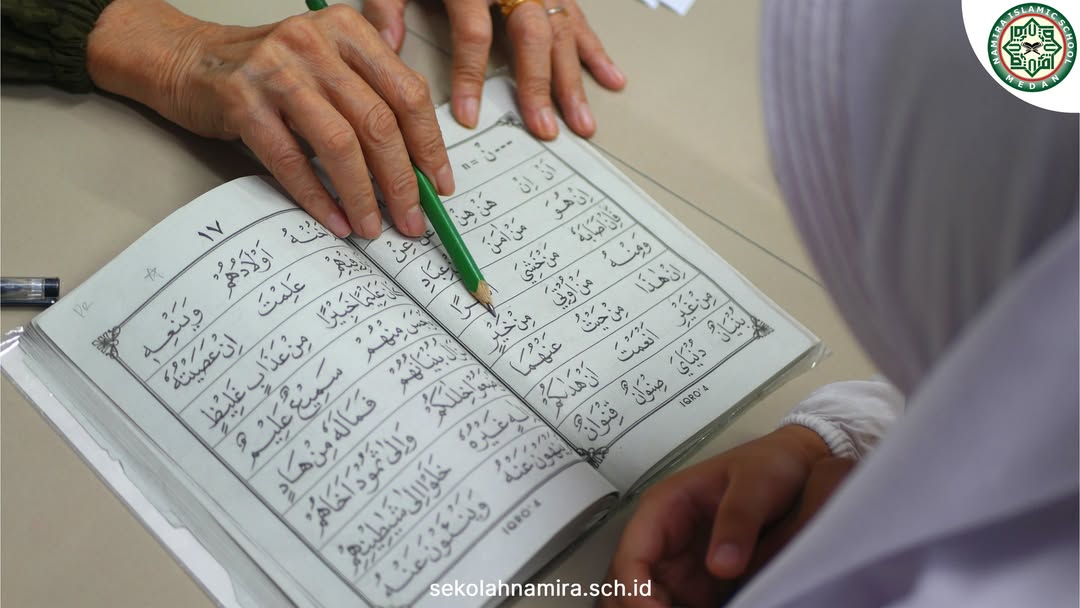 NAMIRA ISLAMIC SCHOOL
MEDAN
n = نْ ---
اَنْ اِنْ هَنْ هِنْ عِنْ
اِنْ هُوَ مَنْ اٰمَنَ
فَاِنْ اَصَابَهُ مَنْ خَشِيَ
وَمِنْهُ مَنْ اُوْتِيَ مِنْ خَيْرٍ
اِنْ هٰذَا مِنْ حَيْثُ عَنْهُمَا
مِنْ غَيْرِ اَنْعَمْتَ اِنْ هَدَاكُمْ
بُنْيَانٌ دُنْيَايَ صِنْوَانٌ قِنْوَانٌ
IQRO' 4
١٧
اَوْلَادُهُمْ وَيَنْعِهِ
عَلِمْتَ اِنْ عَصَيْتُهُ
عَلِيْمًا خَبِيْرًا مِنْ عَذَابٍ غَلِيْظٍ
مِنْهُمْ سَمِيْعٌ عَلِيْمٌ
بُنْيَانُهُمْ فَمَالَهُ مِنْ هَادٍ
خِلٰلَكُمْ وَاِلٰى ثَمُوْدَ اَخَاهُمْ
غَيْرُهُ خَلَوْا اِلٰى شَيٰطِيْنِهِمْ
عَنْهُ وَيَنْئَوْنَ عَنْهُ
IQRO' 4
sekolahnamira.sch.id